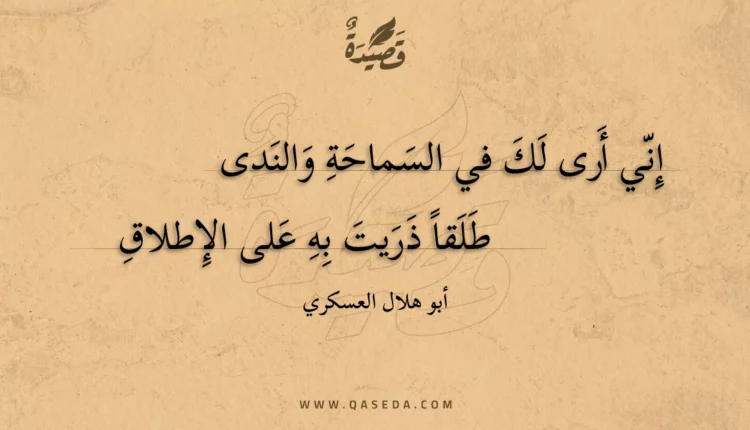 قَصِيدَةٌ
إِنّي أَرى لَكَ في السَماحَةِ وَالنَدى
طَلَقاً ذَرَيتَ بِهِ عَلى الإِطلاقِ
أبو هلال العسكري
WWW.QASEDA.COM